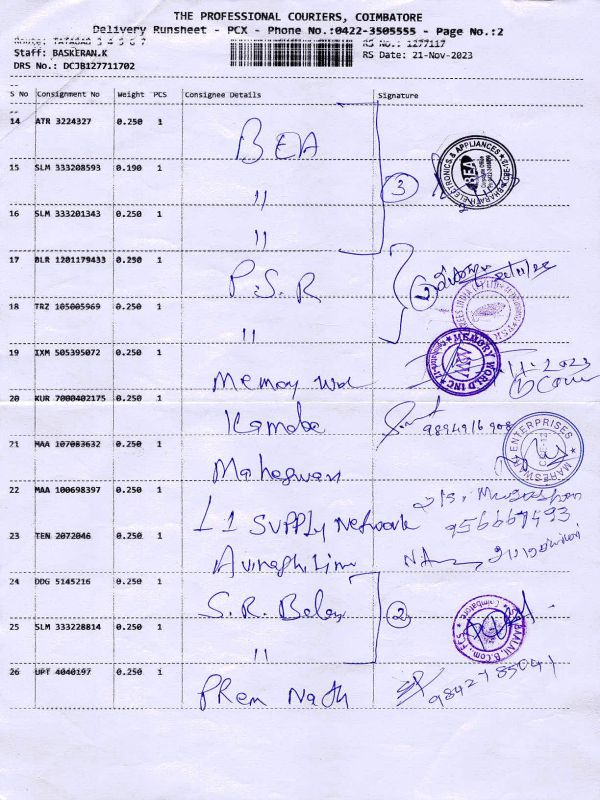 THE PROFESSIONAL COURIERS, COIMBATORE
Delivery Runsheet - PCX - Phone No.:0422-3505555 - Page No.:2
Route: TATABAD 3 4 5 6 7 RS No.: 1277117
Staff: BASKERAN.K RS Date: 21-Nov-2023
DRS No.: DCJB127711702
S No Consignment No Weight PCS Consignee Details Signature
14 ATR 3224327 0.250 1 BEA
15 SLM 333208593 0.190 1 "
3
BHARATH ELECTRONICS & APPLIANCES
BEA
CBE-12
16 SLM 333201343 0.250 1 "
17 BLR 1201179433 0.250 1 P.S.R
2
18 TRZ 105005969 0.250 1 "
19 IXM 505395072 0.250 1 Memoy
MEMORY WORLD INC
11-2023
20 KUR 7000402175 0.250 1
21 MAA 107083632 0.250 1
ENTERPRISES
22 MAA 100698397 0.250 1 L1 Supply Network
9566671493
23 TEN 2072046 0.250 1
24 DDG 5145216 0.250 1 S.R.
2
25 SLM 333228814 0.250 1 "
B.Com., FCS
Coimbatore
26 UPT 4040197 0.250 1 Prem Nath